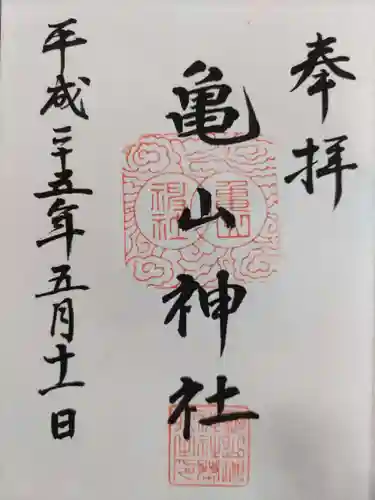 奉拝
亀山神社
平成二十五年五月十一日